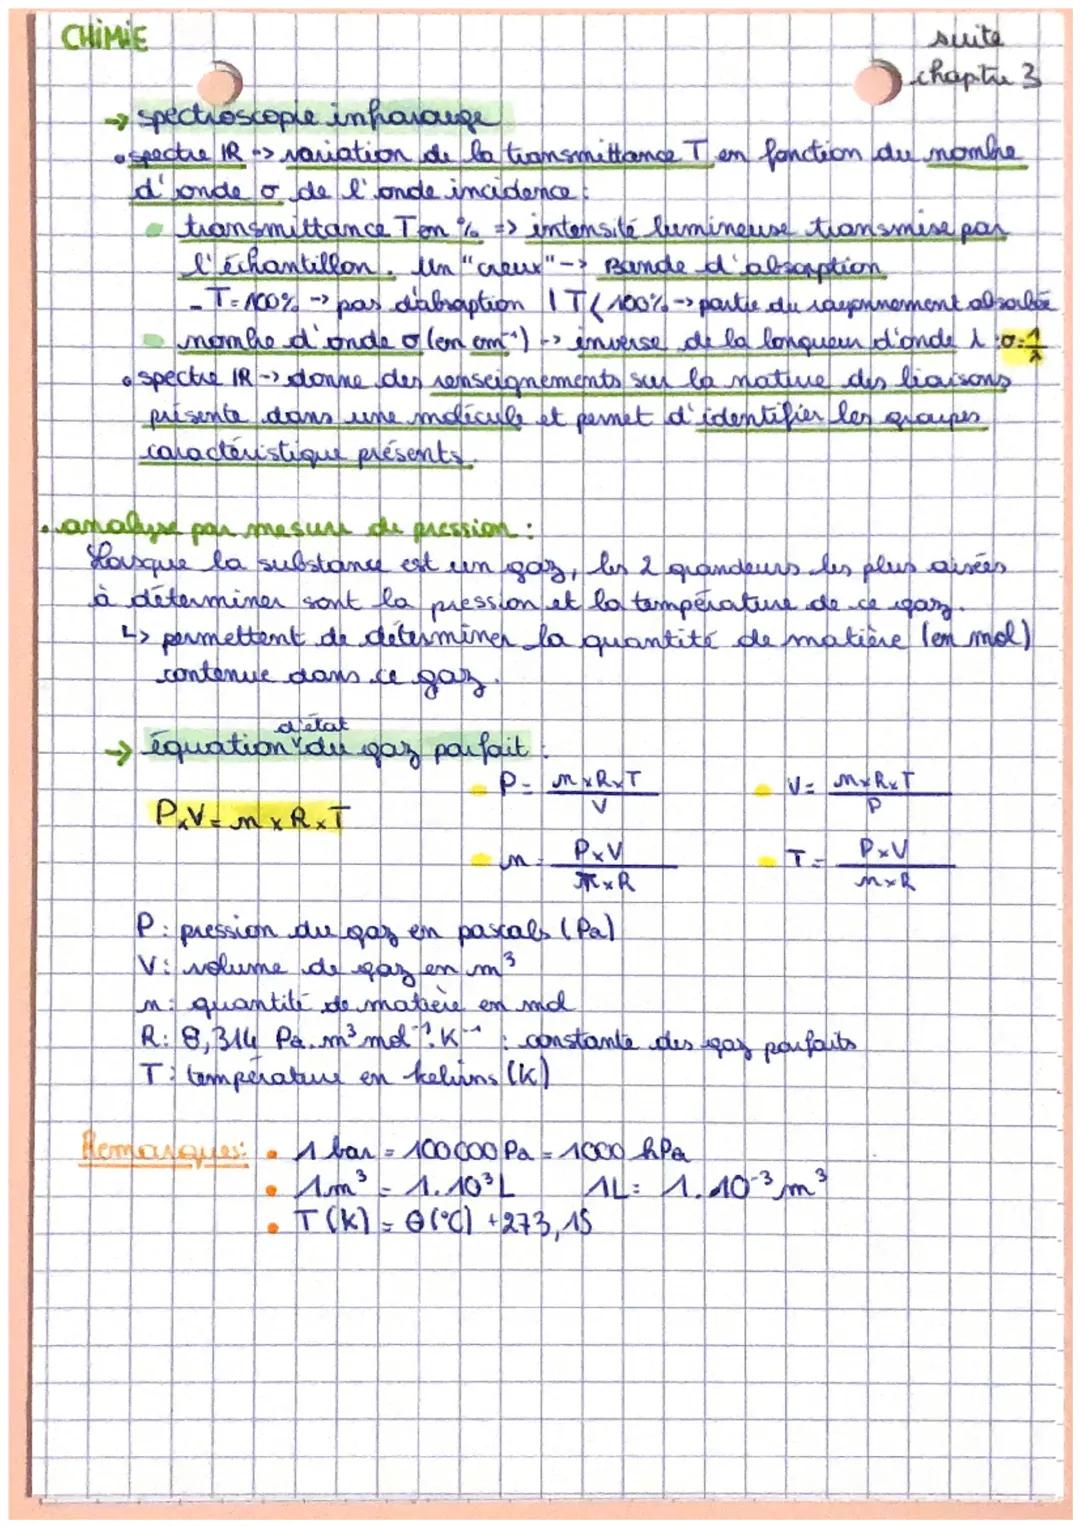 CHIMIE
suite
chapitre 3
→ spectroscopie infrarouge
• spectre IR -> variation de la transmittance T en fonction du nombre
d'onde σ de l'onde incidence :
• transmittance T en % => intensité lumineuse transmise par
l'échantillon. Un "creux" -> Bande d'absorption
- T = 100% -> pas d'absorption | T < 100% -> partie du rayonnement absorbée
• nombre d'onde σ (en cm⁻¹) -> inverse de la longueur d'onde λ : σ = 1/λ
• spectre IR -> donne des renseignements sur la nature des liaisons
présente dans une molécule et permet d'identifier les groupes
caractéristique présents.
• analyse par mesure de pression :
Lorsque la substance est un gaz, les 2 grandeurs les plus aisées
à déterminer sont la pression et la température de ce gaz.
↳ permettent de déterminer la quantité de matière (en mol)
contenue dans ce gaz.
→ équation d'état du gaz parfait :
P×V = n×R×T
• P = n×R×T / V
• V = n×R×T / P
• n = P×V / T×R
• T = P×V / n×R
P : pression du gaz en pascals (Pa)
V : volume de gaz en m³
n : quantité de matière en mol
R : 8,314 Pa.m³.mol⁻¹.K⁻¹ : constante des gaz parfaits
T : température en kelvins (K)
Remarques : • 1 bar = 100 000 Pa = 1000 hPa
• 1 m³ = 1.10³ L 1L = 1.10⁻³ m³
• T (K) = θ (°C) + 273,15